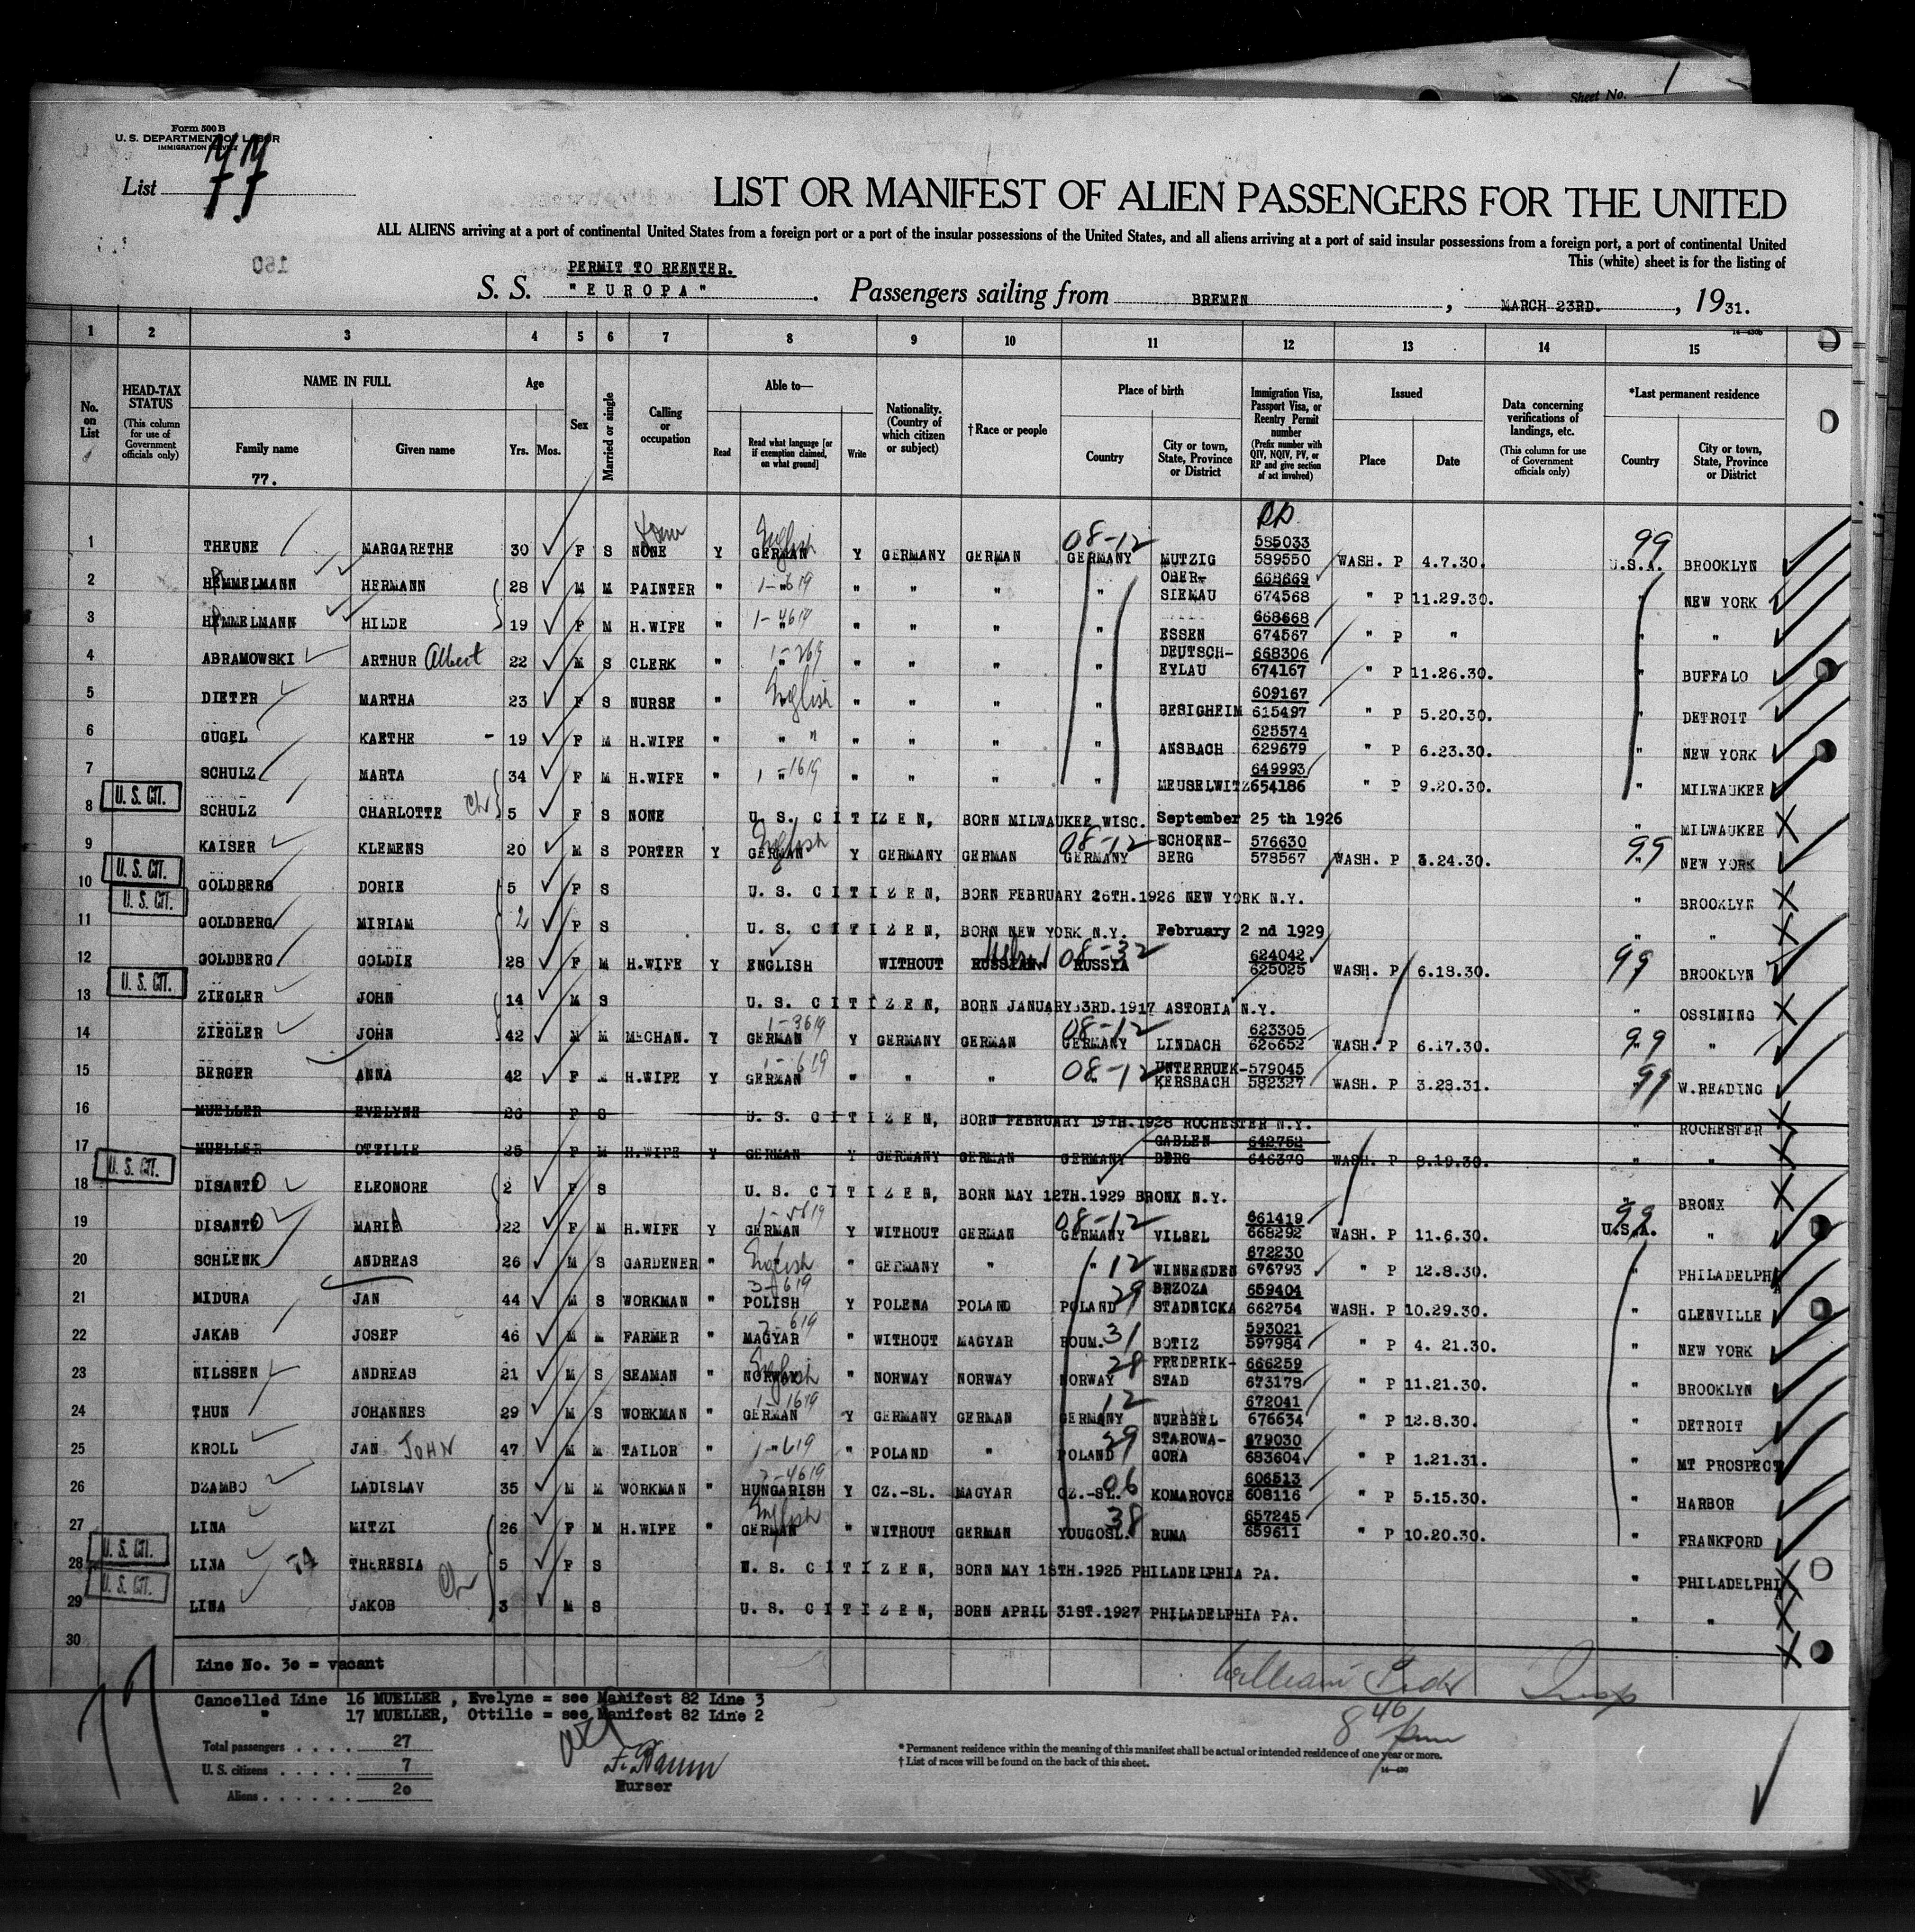 Sheet No. 1
Form 500 B
U. S. DEPARTMENT OF LABOR
IMMIGRATION SERVICE
List 77
LIST OR MANIFEST OF ALIEN PASSENGERS FOR THE UNITED
ALL ALIENS arriving at a port of continental United States from a foreign port or a port of the insular possessions of the United States, and all aliens arriving at a port of said insular possessions from a foreign port, a port of continental United
This (white) sheet is for the listing of
160
PERMIT TO REENTER.
S. S. "EUROPA". Passengers sailing from BREMEN, MARCH 23RD., 1931.
14—430b
1 2 3 4 5 6 7 8 9 10 11 12 13 14 15
No. on List
HEAD-TAX STATUS (This column for use of Government officials only)
NAME IN FULL Family name Given name
77.
Age Yrs. Mos.
Sex
Married or single
Calling or occupation
Able to— Read Read what language [or if exemption claimed, on what ground] Write
Nationality. (Country of which citizen or subject)
† Race or people
Place of birth Country City or town, State, Province or District
Immigration Visa, Passport Visa, or Reentry Permit number (Prefix number with QIV, NQIV, PV, or RP and give section of act involved)
Issued Place Date
Data concerning verifications of landings, etc. (This column for use of Government officials only)
*Last permanent residence Country City or town, State, Province or District
RP
1 THEUNE MARGARETHE 30 F S NONE Y GERMAN English Y GERMANY GERMAN 08-12 GERMANY MUTZIG 585033 589550 WASH. P 4.7.30. 99 U.S.A. BROOKLYN
2 HEMMELMANN HERMANN 28 M M PAINTER " " 1-619 " " " " OBER- SIEMAU 668669 674568 " P 11.29.30. " NEW YORK
3 HEMMELMANN HILDE 19 F M H.WIFE " " 1-4619 " " " " ESSEN 668668 674567 " P " " "
4 ABRAMOWSKI ARTHUR Albert 22 M S CLERK " " 1-269 " " " " DEUTSCH- EYLAU 668306 674167 " P 11.26.30. " BUFFALO
5 DIETER MARTHA 23 F S NURSE " English " " " " BESIGHEIM 609167 615497 " P 5.20.30. " DETROIT
6 GUGEL KAETHE - 19 F M H.WIFE " " " " " " " ANSBACH 625574 629679 " P 6.23.30. " NEW YORK
7 SCHULZ MARTA 34 F M H.WIFE " " 1-1619 " " " " MEUSELWITZ 649993 654186 " P 9.20.30. " MILWAUKEE
U. S. CIT.
8 SCHULZ CHARLOTTE Ch 5 F S NONE U. S. CITIZEN, BORN MILWAUKEE WISC. September 25 th 1926 " MILWAUKEE
9 KAISER KLEMENS 20 M S PORTER Y GERMAN English Y GERMANY GERMAN 08-12 GERMANY SCHOENE- BERG 576630 578567 WASH. P 3.24.30. 99 " NEW YORK
U. S. CIT.
10 GOLDBERG DORIE 5 F S U. S. CITIZEN, BORN FEBRUARY 26TH.1926 NEW YORK N.Y. " BROOKLYN
U. S. CIT.
11 GOLDBERG MIRIAM 2 F S U. S. CITIZEN, BORN NEW YORK N.Y. February 2 nd 1929 " "
12 GOLDBERG GOLDIE 28 F M H.WIFE Y ENGLISH WITHOUT RUSSIAN 08-32 RUSSIA 624042 625025 WASH. P 6.18.30. 99 BROOKLYN
U. S. CIT.
13 ZIEGLER JOHN 14 M S U. S. CITIZEN, BORN JANUARY 3RD.1917 ASTORIA N.Y. " OSSINING
14 ZIEGLER JOHN 42 M M MECHAN. Y GERMAN 1-3619 Y GERMANY GERMAN 08-12 GERMANY LINDACH 623305 626652 WASH. P 6.17.30. 99 " "
15 BERGER ANNA 42 F M H.WIFE Y GERMAN 1-619 " " " 08-12 " UNTERRUEK- KERSBACH 579045 582327 WASH. P 3.23.31. 99 " W.READING
16 MUELLER EVELYNE 26 F S U. S. CITIZEN, BORN FEBRUARY 19TH.1928 ROCHESTER N.Y. " ROCHESTER
17 MUELLER OTTILIE 25 F M H.WIFE Y GERMAN Y GERMANY GERMAN GERMANY GABLEN BERG 642752 646370 WASH. P 8.19.30. " "
U. S. CIT.
18 DISANTO ELEONORE 2 F S U. S. CITIZEN, BORN MAY 12TH.1929 BRONX N.Y. " BRONX
19 DISANTO MARIA 22 F M H.WIFE Y GERMAN 1-5619 Y WITHOUT GERMAN 08-12 GERMANY VILBEL 661419 668292 WASH. P 11.6.30. 99 U.S.A. "
20 SCHLENK ANDREAS 26 M S GARDENER " English " GERMANY " " 12 WINNENDEN 672230 676793 " P 12.8.30. " PHILADELPHIA
21 MIDURA JAN 44 M S WORKMAN " POLISH 3-619 Y POLENA POLAND POLAND 29 BRZOZA STADNICKA 659404 662754 WASH. P 10.29.30. " GLENVILLE
22 JAKAB JOSEF 46 M M FARMER " MAGYAR 2-619 " WITHOUT MAGYAR ROUM. 31 BOTIZ 593021 597984 " P 4. 21.30. " NEW YORK
23 NILSSEN ANDREAS 21 M S SEAMAN " NORWAY English " NORWAY NORWAY NORWAY 28 FREDERIK- STAD 666259 673178 " P 11.21.30. " BROOKLYN
24 THUN JOHANNES 29 M S WORKMAN " GERMAN 1-1619 Y GERMANY GERMAN GERMANY 12 NUEBBEL 672041 676634 " P 12.8.30. " DETROIT
25 KROLL JAN JOHN 47 M M TAILOR " " 1-619 " POLAND " POLAND 29 STAROWA- GORA 679030 683604 " P 1.21.31. " MT PROSPECT
26 DZAMBO LADISLAV 35 M M WORKMAN " HUNGARISH 2-4619 Y CZ.-SL. MAGYAR CZ.-SL. 06 KOMAROVCE 606513 608116 " P 5.15.30. " HARBOR
27 LINA MITZI 26 F M H.WIFE " GERMAN English " WITHOUT GERMAN YOUGOSL. 38 RUMA 657245 659611 " P 10.20.30. " FRANKFORD
U. S. CIT.
28 LINA THERESIA 5 F S U. S. CITIZEN, BORN MAY 18TH.1925 PHILADELPHIA PA. " PHILADELPHIA
U. S. CIT.
29 LINA JAKOB Ch 3 M S U. S. CITIZEN, BORN APRIL 31ST.1927 PHILADELPHIA PA. " "
30
Line No. 30 = vacant
William Insp
Cancelled Line 16 MUELLER , Evelyne = see Manifest 82 Line 3
" 17 MUELLER, Ottilie = see Manifest 82 Line 2
8 46 pm
77
Total passengers . . . . 27
U. S. citizens . . . . . . 7
Aliens . . . . . . 20
Purser
* Permanent residence within the meaning of this manifest shall be actual or intended residence of one year or more.
† List of races will be found on the back of this sheet.
14—430